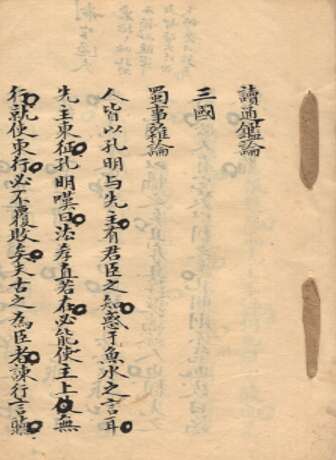 讀通鑑論
三國
蜀事雜論
人皆以孔明与先主有君臣之知惑于魚水之言耳
先主東征孔明嘆曰法孝直若在必能使主上無
行就使東行必不覆敗矣夫古之為臣者諫行言